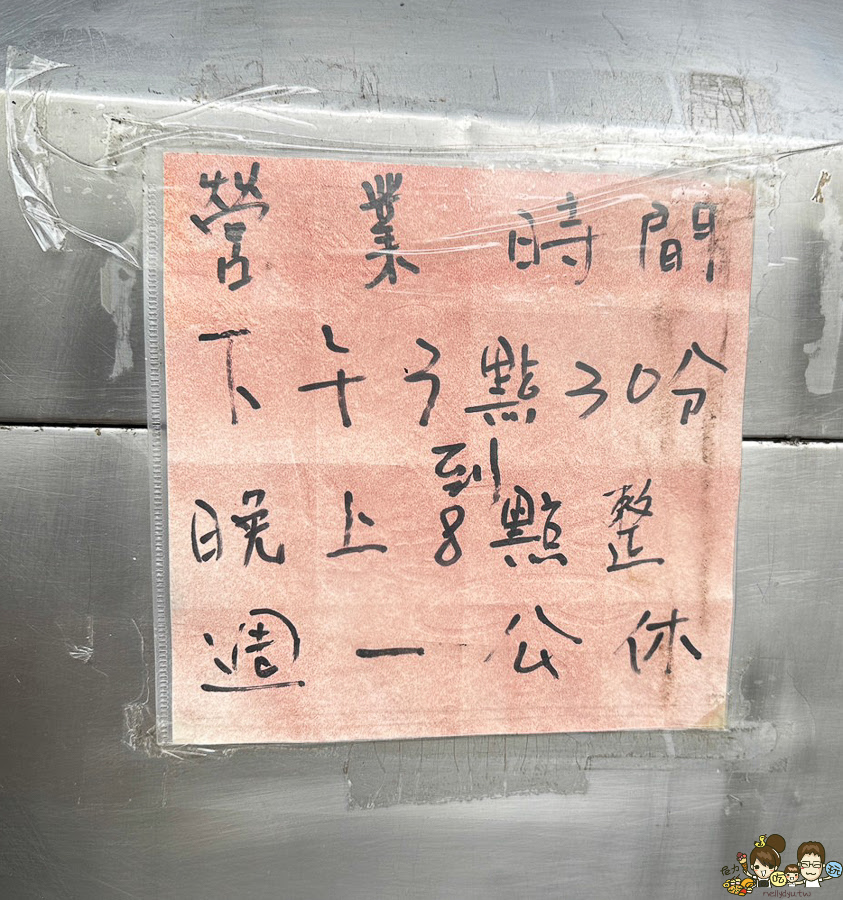 營業時間
下午3點30分
到
晚上8點整
週一公休
吃
玩
nellydyu.tw